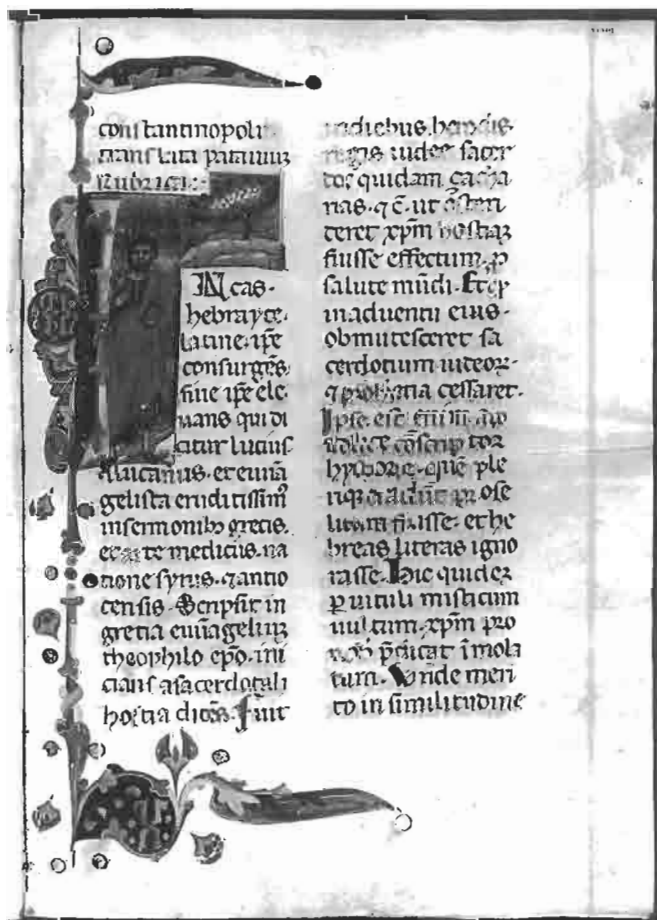 constantinopoli
translata patauium
Rubrica:
INcas
hebrayce
latine ipe
consurgēs
siue ipe ele
uans qui di
citur lucius
lucanus et euuā
gelista eruditissimꝰ
in sermonibꝰ grecis
et arte medicus na
tione syrus ⁊ antio
censis Scripsit in
gretia euuāgeliuꝫ
theophilo epō ini
cians a sacerdotali
hostia dicēs Fuit
in diebus herodis
regis iudee sacer
quidam ꝗ ē ut
xp̄m hostiaꝫ
fuisse effectum ꝓ
salute mūdi Et
in aduentu eius
obmutesceret sa
cerdotium iudeoꝝ
⁊ cessaret
Ipse est
cōscriptor
hystorie quē ple
fuisse et he
breas literas igno
rasse Hic quideꝫ
ꝑ uituli misticum
uultum xp̄m pro
p̄dicat īmola
tum Vnde meri
to in similitudine